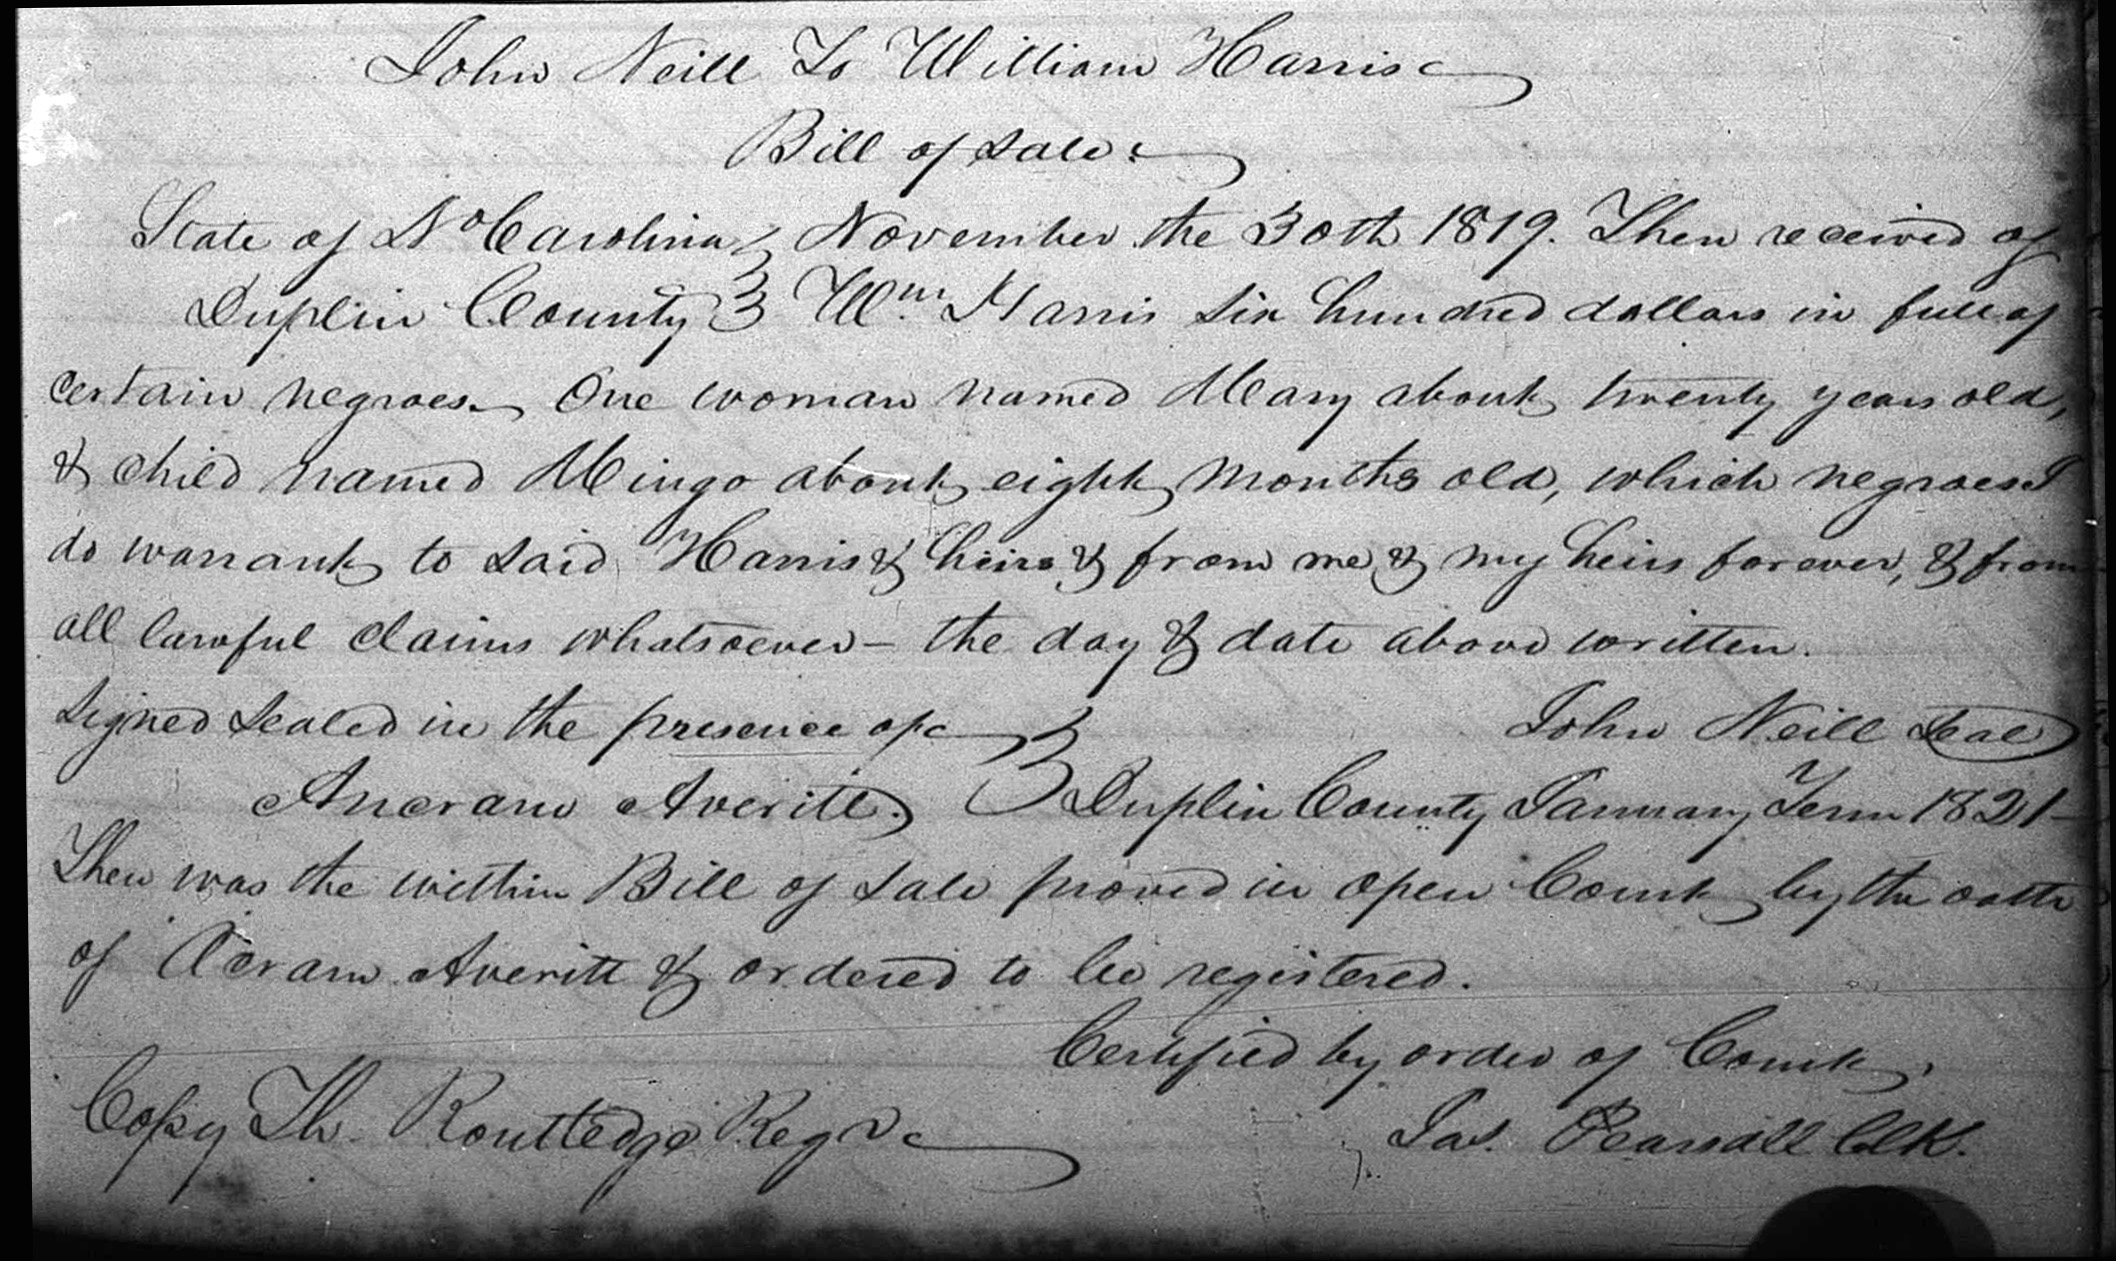 John Neill To William Harris
Bill of Sale.
State of No Carolina } November the 30th 1819. Then received of
Duplin County } Wm. Harris Six hundred dollars in full of
certain negroes. One woman named Mary about twenty years old,
& child named Mingo about eight months old, which negroes I
do warrant to said Harris & heirs & from me & my heirs forever, & from
all lawful claims whatsoever – the day & date above written.
Signed Sealed in the presence of } John Neill Seal
Ancram Averitt. } Duplin County January Term 1821 –
Then was the within Bill of Sale proved in open Court by the oath
of Acram Averitt & ordered to be registered.
Certified by order of Court,
Copy Th. Routledge Regr Jas. Pearsall Clk.